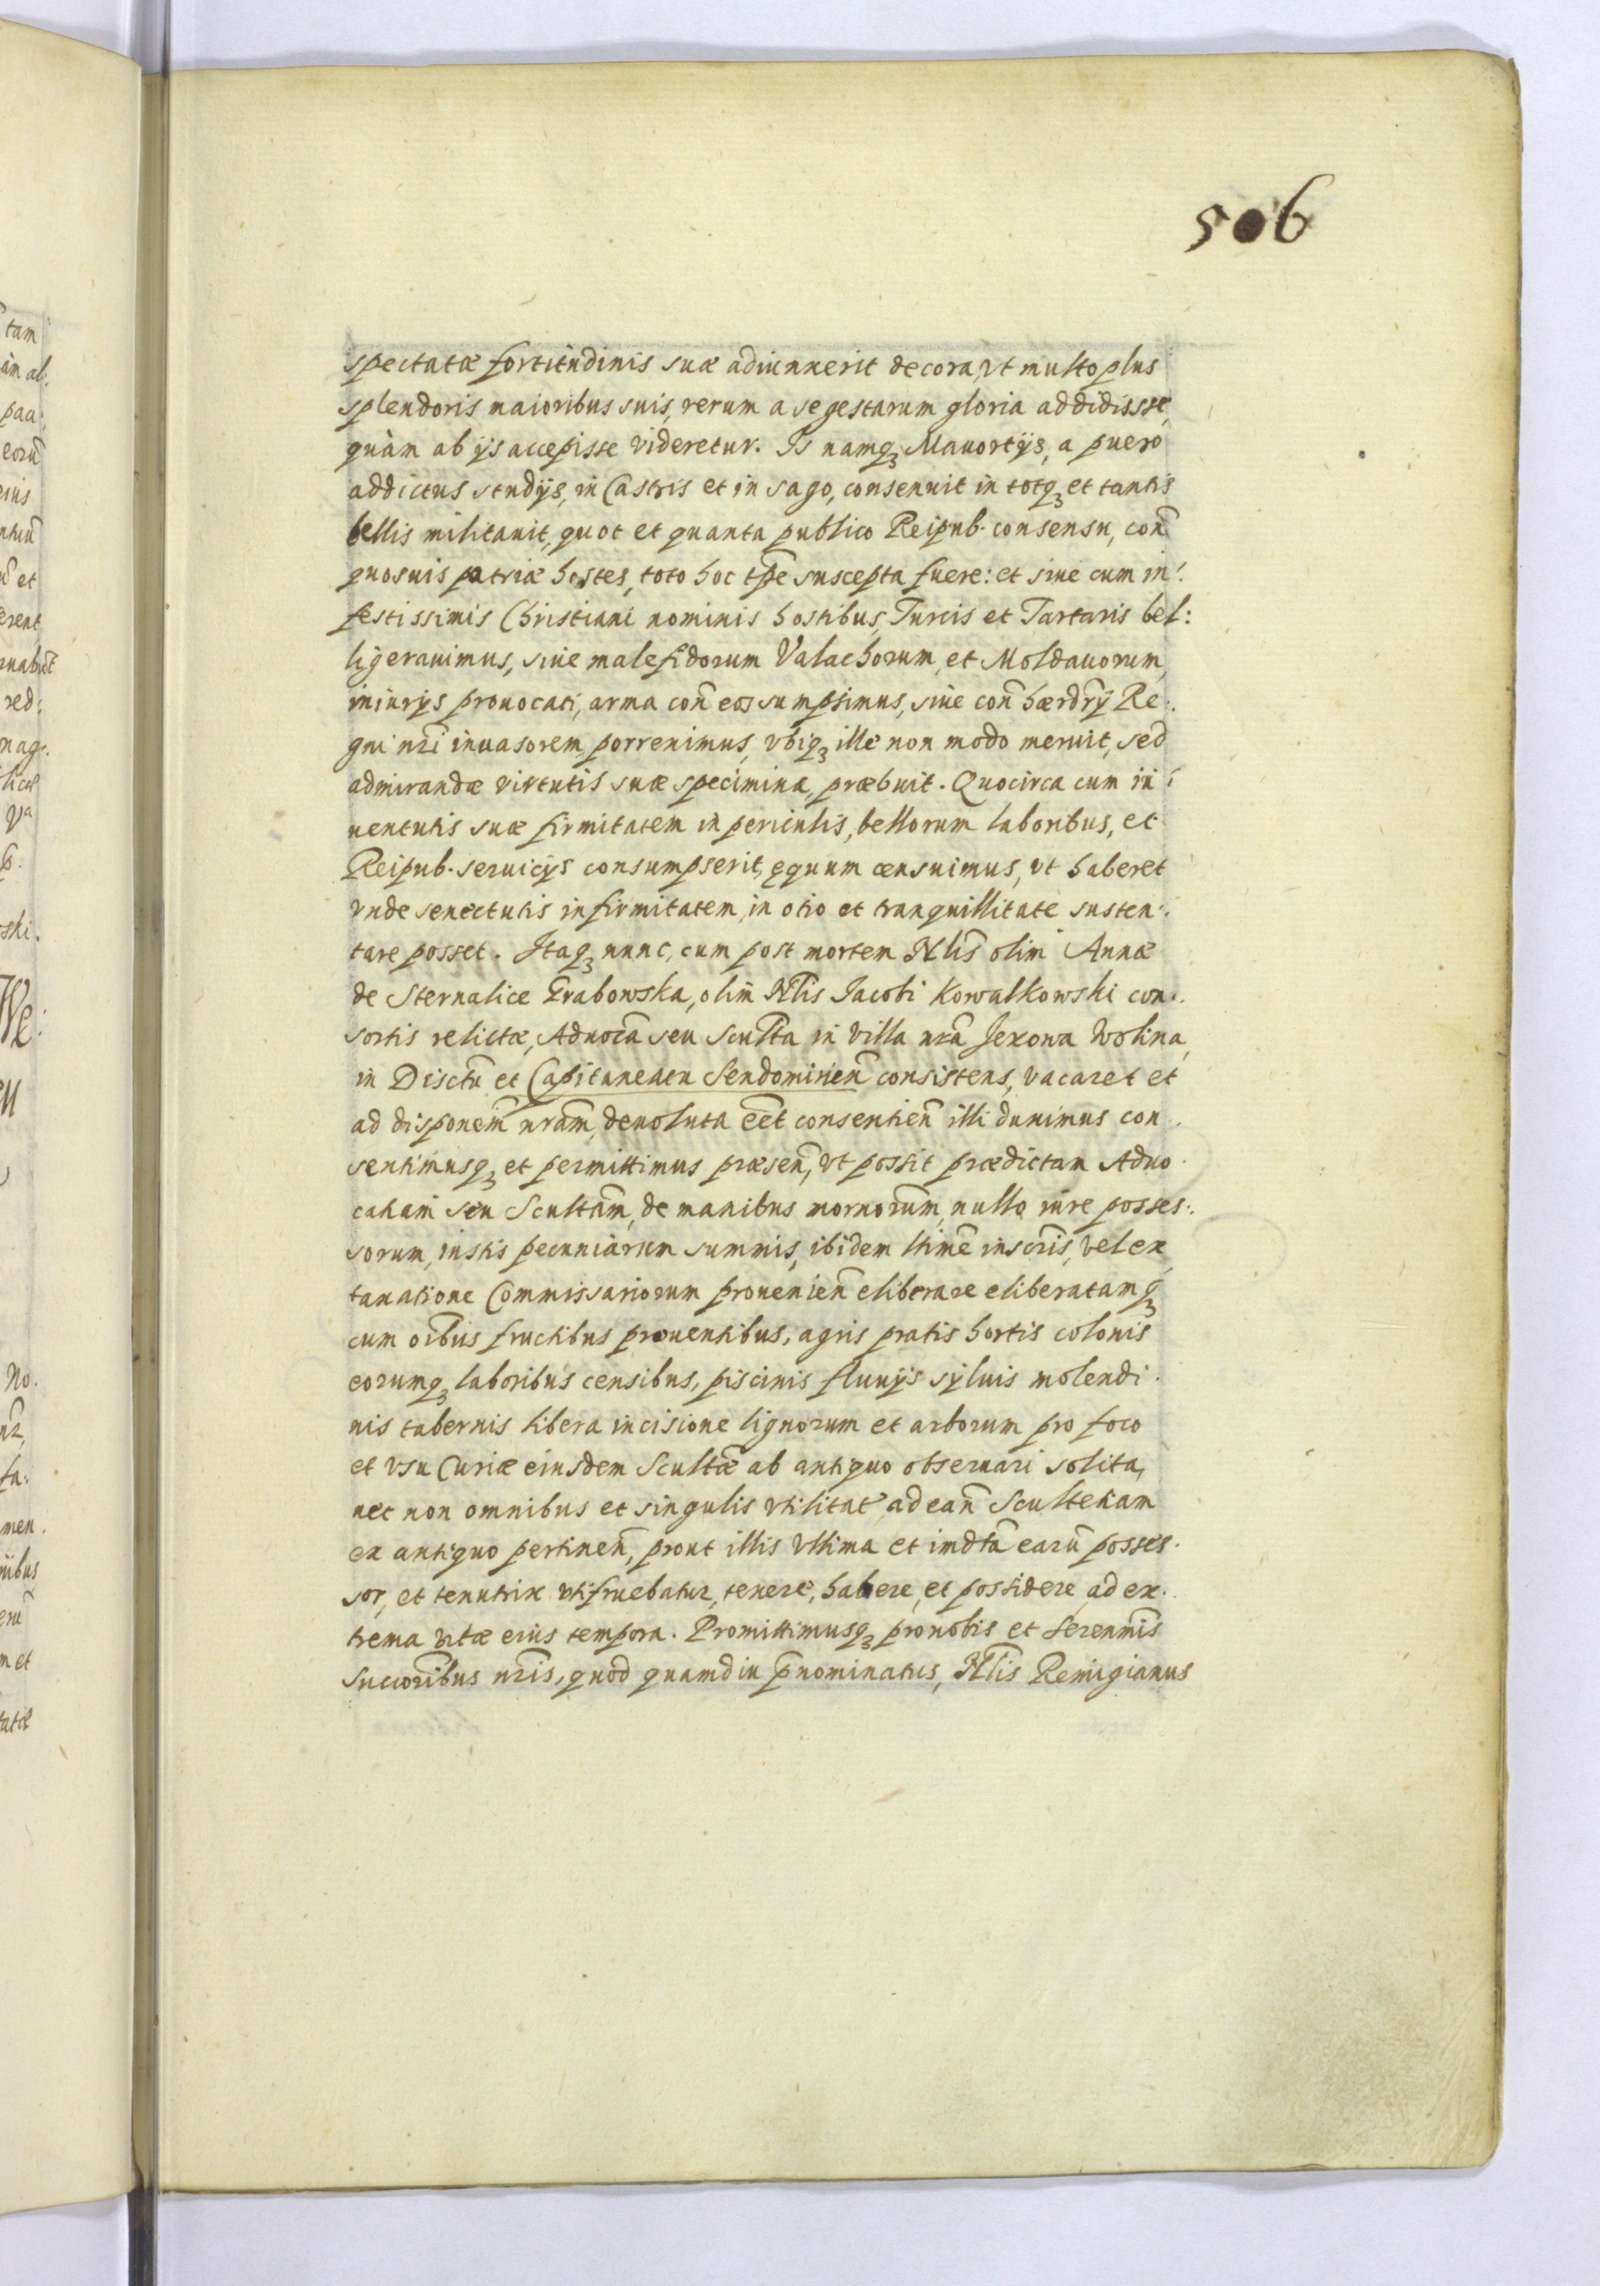 506
spectatæ fortitudinis suæ adiunxerit decora, vt multo plus
splendoris maioribus suis, rerum a se gestarum gloria addidissse,
quàm ab ijs accepisse videretur. Is namq₃ Mauortijs, a puero
addictus studijs, in Castris et in sago, consenuit in totq₃ et tantis
bellis militauit, quot et quanta publico Reipub. consensu, coñ
quosuis patriæ hostes, toto hoc tp̃e suscepta fuere: et siue cum in:
festissimis Christiani nominis hostibus, Turcis et Tartaris bel:
ligerauimus, siue malefidorum Valachorum, et Moldauorum,
iniurijs prouocati, arma coñ eos sumpsimus, siue coñ hærdr̃ÿ Re:
gni nr̃i inuasorem, porrenimus, vbiq₃ ille non modo meruit, sed
admirandæ virtutis suæ specimina, præbuit. Quocirca cum iu:
uentutis suæ firmitatem in periculis, bellorum laboribus, et
Reipub. seruicijs consumpserit, ęquum censuimus, vt haberet
vnde senectutis infirmitatem, in otio et tranquillitate susten:
tare posset. Itaq₃ nunc, cum post mortem Nl̃is olim Annæ
de Sternalice Grabowska, olim̃ Nl̃is Jacobi Kowalkowski con:
sortis relictæ, Aduocãa seu Scultt̃a in villa nr̃a Jexowa Wolina,
in Disctũ et Capitaneatu Sendomirieñ consistens, vacaret et
ad disponem̃ nrãm, deuoluta eẽt consentieñ illi duximus con
sentimusq₃ et permittimus præseñ, vt possit prædictam Aduo
catiam seu Scultt̃am, de manibus mornorum̃, nullo iure posses:
sorum, iustis pecuniarum summis, ibidem ltimẽ inscr̃is, vel ex
taxatione Commissariorum prouenieñ eliberare eliberatamq₃
cum oĩbus fructibus prouentibus, agris pratis hortis colonis
eorumq₃ laboribus censibus, piscinis fluuijs syluis molendi
nis tabernis libera incisione lignorum et arborum pro foco
et vsu Curiæ eiusdem Scultt̃æ ab antiquo obseruari solita,
nec non omnibus et singulis vtilitat̃ ad eañ Scultetiam
ex antiquo pertineñ, prout illis vltima et imdtã earũ posses.
sor, et tenutrix vtifruebatur, tenere, habere, et possidere, ad ex.
trema vitæ eius tempora. Promittimusq₃ pro nobis et Serenm̃is
Succorĩbus nr̃is, quod quamdiu p̃nominatus, Nl̃is Remigianus